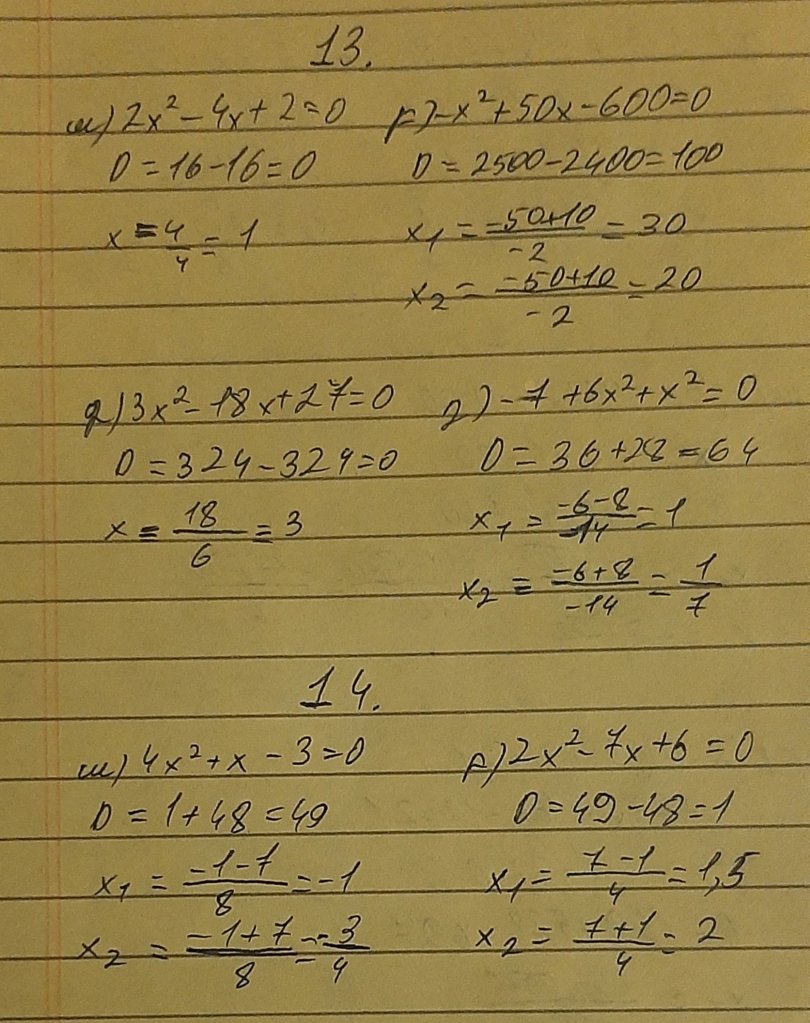 13.
ա) 2x² - 4x + 2 = 0
D = 16 - 16 = 0
x = 4/4 = 1
բ) -x² + 50x - 600 = 0
D = 2500 - 2400 = 100
x₁ = (-50+10)/-2 = 30
x₂ = (-50+10)/-2 = 20
գ) 3x² - 18x + 27 = 0
D = 324 - 324 = 0
x = 18/6 = 3
դ) -7 + 6x² + x² = 0
D = 36 + 28 = 64
x₁ = (-6-8)/-14 = 1
x₂ = (-6+8)/-14 = 1/7
14.
ա) 4x² + x - 3 = 0
D = 1 + 48 = 49
x₁ = (-1-7)/8 = -1
x₂ = (-1+7)/8 = 3/4
բ) 2x² - 7x + 6 = 0
D = 49 - 48 = 1
x₁ = (7-1)/4 = 1,5
x₂ = (7+1)/4 = 2